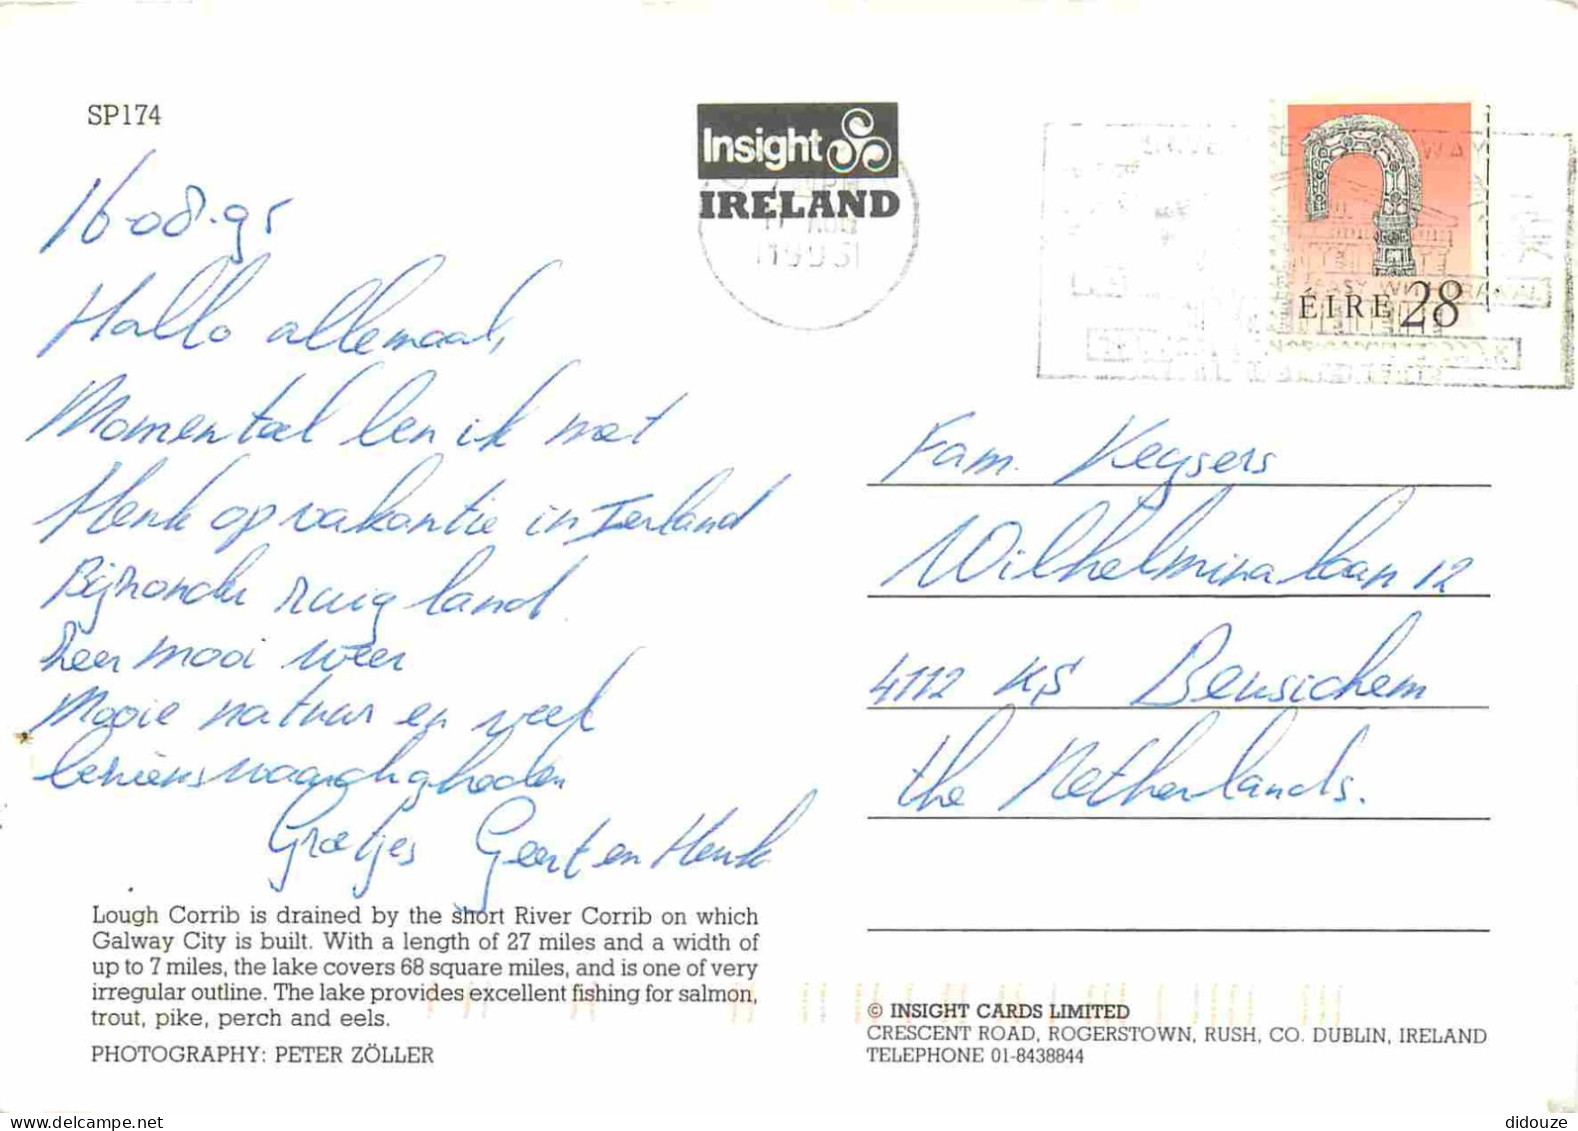 SP174
Insight
IRELAND
11 AUG
1995
ÉIRE 28
16-08-95
Hallo allemaal,
Momenteel ben ik met
Henk op vakantie in Ierland
Bijzonder ruig land.
Zeer mooi weer
Mooie natuur en veel
beziens waardigheden
Groetjes Geert en Henk
Fam. Keysers
Wilhelminalaan 12
4112 KS Beusichem
the Netherlands.
Lough Corrib is drained by the short River Corrib on which
Galway City is built. With a length of 27 miles and a width of
up to 7 miles, the lake covers 68 square miles, and is one of very
irregular outline. The lake provides excellent fishing for salmon,
trout, pike, perch and eels.
PHOTOGRAPHY: PETER ZÖLLER
© INSIGHT CARDS LIMITED
CRESCENT ROAD, ROGERSTOWN, RUSH, CO. DUBLIN, IRELAND
TELEPHONE 01-8438844
didouze